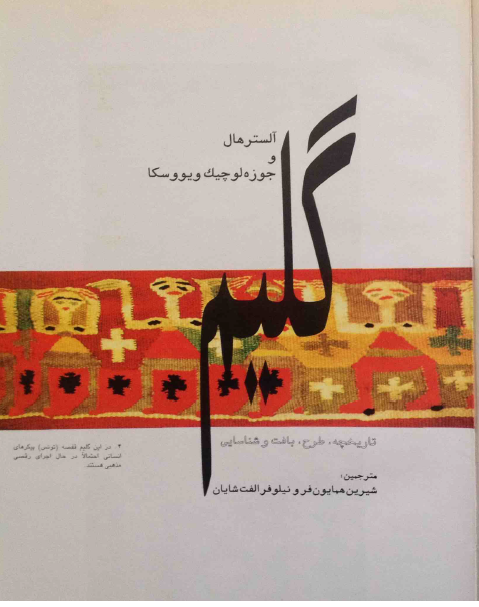 آلسترهال
و
جوزه‌لوچیك ویووسکا
گلیم
تاریخچه، طرح، بافت و شناسایی
۴ در این گلیم قفصه (تونس) پیکرهای
انسانی احتمالاً در حال اجرای رقصی
مذهبی هستند.
مترجمین:
شیرین همایون‌فر و نیلوفر الفت‌شایان